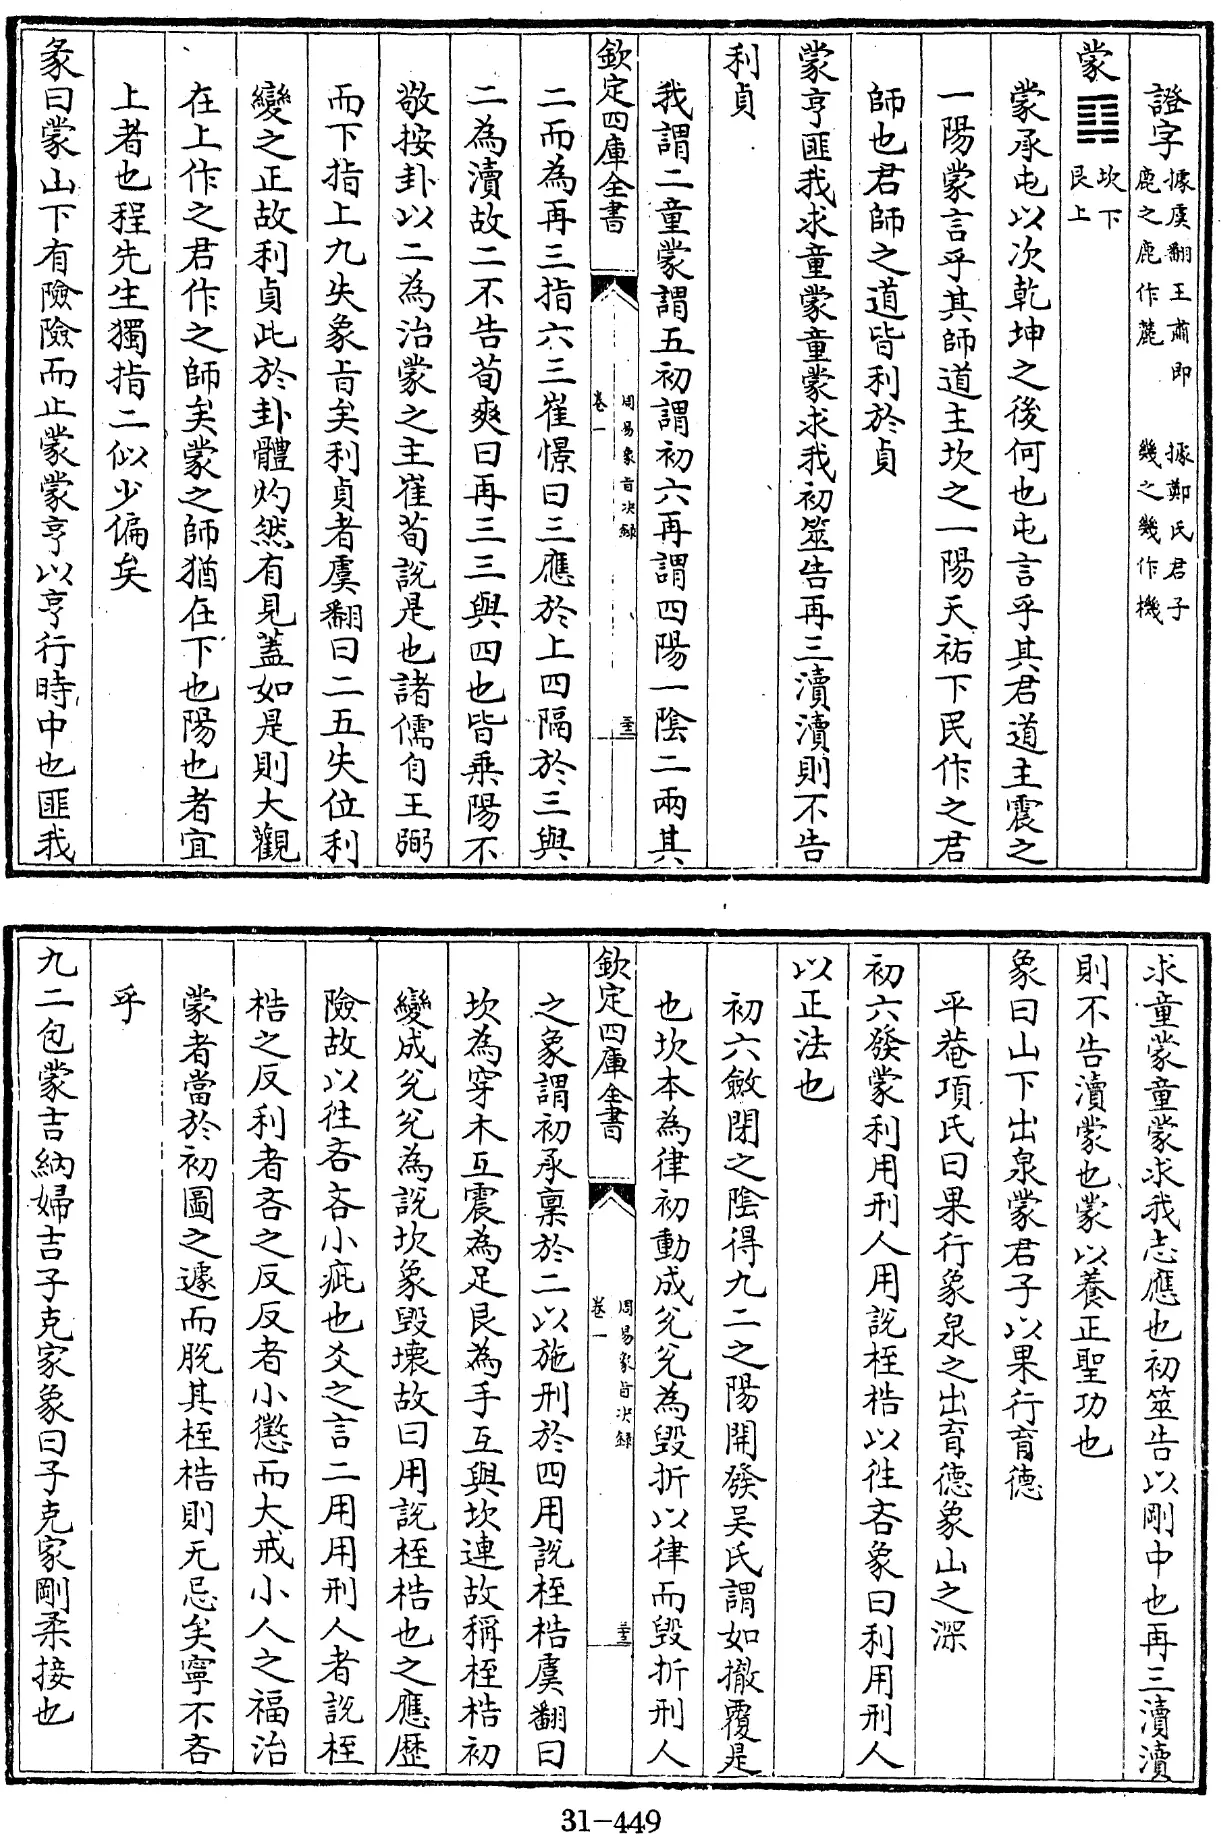 證字據虞翻王肅即鹿之鹿作麓 據鄭氏君子幾之幾作機
蒙䷃坎下艮上
蒙承屯以次乾坤之後何也屯言乎其君道主震之
一陽蒙言乎其師道主坎之一陽天祐下民作之君
師也君師之道皆利於貞
蒙亨匪我求童蒙童蒙求我初筮告再三瀆瀆則不告
利貞
我謂二童蒙謂五初謂初六再謂四陽一陰二兩其
欽定四庫全書 周易象旨決錄 卷一 三
二而為再三指六三崔憬曰三應於上四隔於三與
二為瀆故二不告荀爽曰再三三與四也皆乗陽不
敬按卦以二為治蒙之主崔荀説是也諸儒自王弼
而下指上九失象旨矣利貞者虞翻曰二五失位利
變之正故利貞此於卦體灼然有見蓋如是則大觀
在上作之君作之師矣蒙之師猶在下也陽也者宜
上者也程先生獨指二似少偏矣
彖曰蒙山下有險險而止蒙蒙亨以亨行時中也匪我
求童蒙童蒙求我志應也初筮告以剛中也再三瀆瀆
則不告瀆蒙也蒙以養正聖功也
象曰山下出泉蒙君子以果行育德
平菴項氏曰果行象泉之出育德象山之深
初六發蒙利用刑人用説桎梏以往吝象曰利用刑人
以正法也
初六斂閉之陰得九二之陽開發吳氏謂如撤覆是
也坎本為律初動成兊兊為毀折以律而毀折刑人
欽定四庫全書 周易象旨決錄 卷一
之象謂初承稟於二以施刑於四用説桎梏虞翻曰
坎為穿木互震為足艮為手互與坎連故稱桎梏初
變成兊兊為説坎象毀壞故曰用説桎梏也之應歷
險故以往吝吝小疵也爻之言二用用刑人者説桎
梏之反利者吝之反反者小懲而大戒小人之福治
蒙者當於初圖之遽而脫其桎梏則无忌矣寧不吝
乎
九二包蒙吉納婦吉子克家象曰子克家剛柔接也
31-449